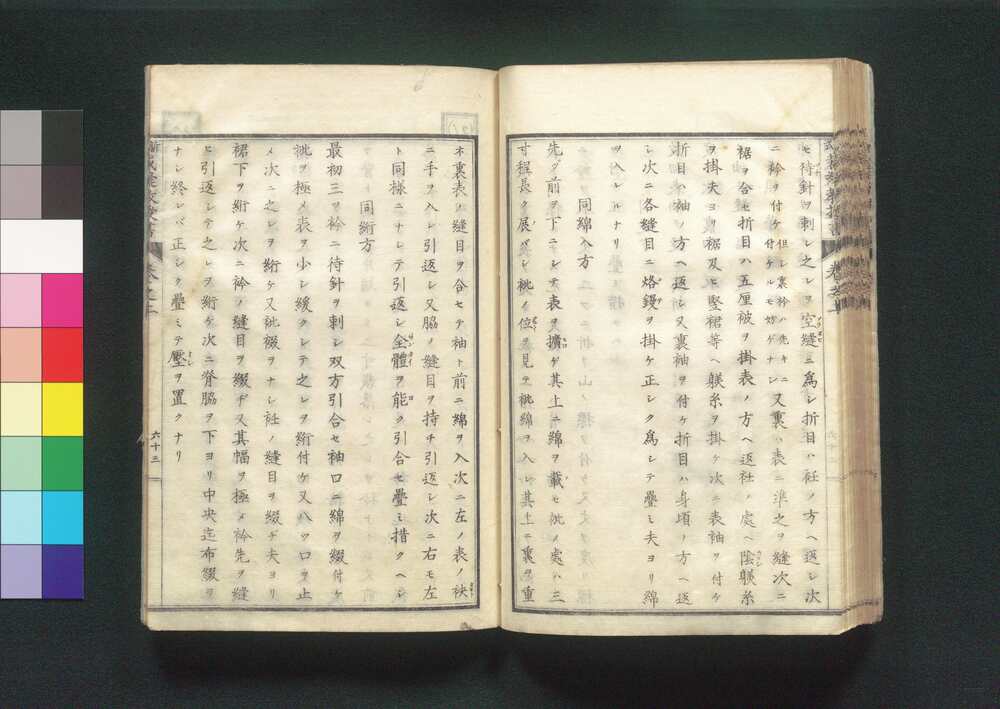 セ待針ヲ刺シ之レヲ空縫ニ爲シ折目ハ衽ノ方ヘ返シ次
ニ衿ヲ付ケ但シ裏衿ハ先キニ付ケルモ妨ゲナシ又裏ハ表ニ準之ヲ縫次ニ
裾ヲ合セ折目ハ五厘被ヲ掛表ノ方ヘ返衽ノ處ヘ陰躾糸
ヲ掛夫ヨリ裾及ヒ竪裾等ヘ躾糸ヲ掛ケ次ニ表袖ヲ付ケ
折目ハ袖ノ方ヘ返シ又裏袖ヲ付ケ折目ハ身頃ノ方ヘ返
シ次ニ各縫目ニ烙鏝ヲ掛ケ正シク爲シテ疊ミ夫ヨリ綿
ヲ入ヘルナリ
同綿入方
先ヅ前ヲ下ニシテ表ヲ擴ゲ其上ニ綿ヲ載セ紕ノ處ハ三
寸程長ク展バシ紕ノ位ヲ見テ紕綿ヲ入レ其上ニ裏ヲ重
ネ裏表ノ縫目ヲ合セテ袖ト前ニ綿ヲ入次ニ左ノ表ノ袂
ニ手ヲ入レ引返シ又脇ノ縫目ヲ持チ引返シ次ニ右モ左
ト同様ニナシテ引返シ全體ヲ能ク引合セ疊ミ措クヘシ
同絎方
最初三ツ衿ニ待針ヲ刺シ双方引合セ袖口ニ綿ヲ綴付ケ
紕ヲ極メ表ヲ小シ緩クシテ之レヲ絎付ケ又八ツ口ヲ止
メ次ニ之レヲ絎ケ又紕綴ヲナシ衽ノ縫目ヲ綴ヂ夫ヨリ
裾下ヲ絎ケ次ニ衿ノ縫目ヲ綴ヂ又其幅ヲ極メ衿先ヲ縫
ヒ引返シテ之レヲ絎ケ次ニ脊脇ヲ下ヨリ中央迄布綴ヲ
ナシ終レバ正シク疊ミテ壓ヲ置クナリ
六十三